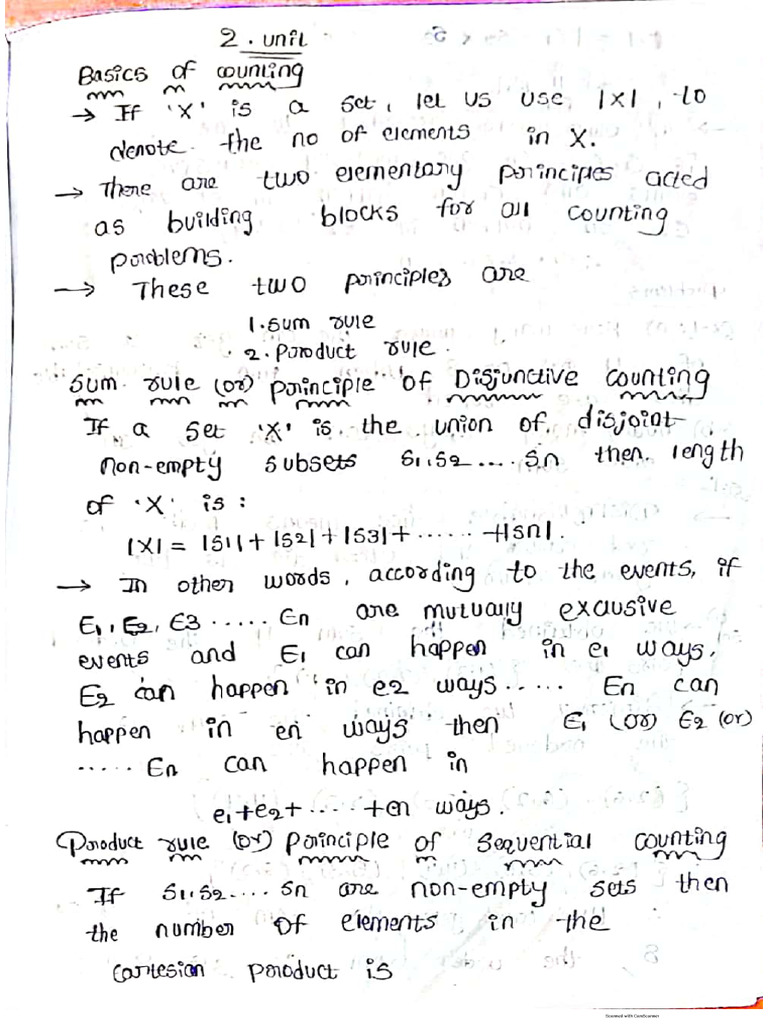 2. unit
Basics of counting
→ If 'X' is a set, let us use |X|, to
denote the no of elements in X.
→ There are two elementary principles acted
as building blocks for all counting
problems.
→ These two principles are
1. sum rule
2. Product rule.
Sum rule (or) principle of Disjunctive counting
If a set 'X' is the union of disjoint
non-empty subsets S1, S2 .... Sn then length
of 'X' is :
|X| = |S1| + |S2| + |S3| + ...... +|Sn|.
→ In other words, according to the events, if
E1, E2, E3 ..... En are mutually exclusive
events and E1 can happen in e1 ways.
E2 can happen in e2 ways ..... En can
happen in en ways then E1 (or) E2 (or)
..... En can happen in
e1+e2+ ..... +en ways.
Product rule (or) Principle of Sequential counting
If S1, S2 .... Sn are non-empty sets then
the number of elements in the
cartesian product is
Scanned with CamScanner